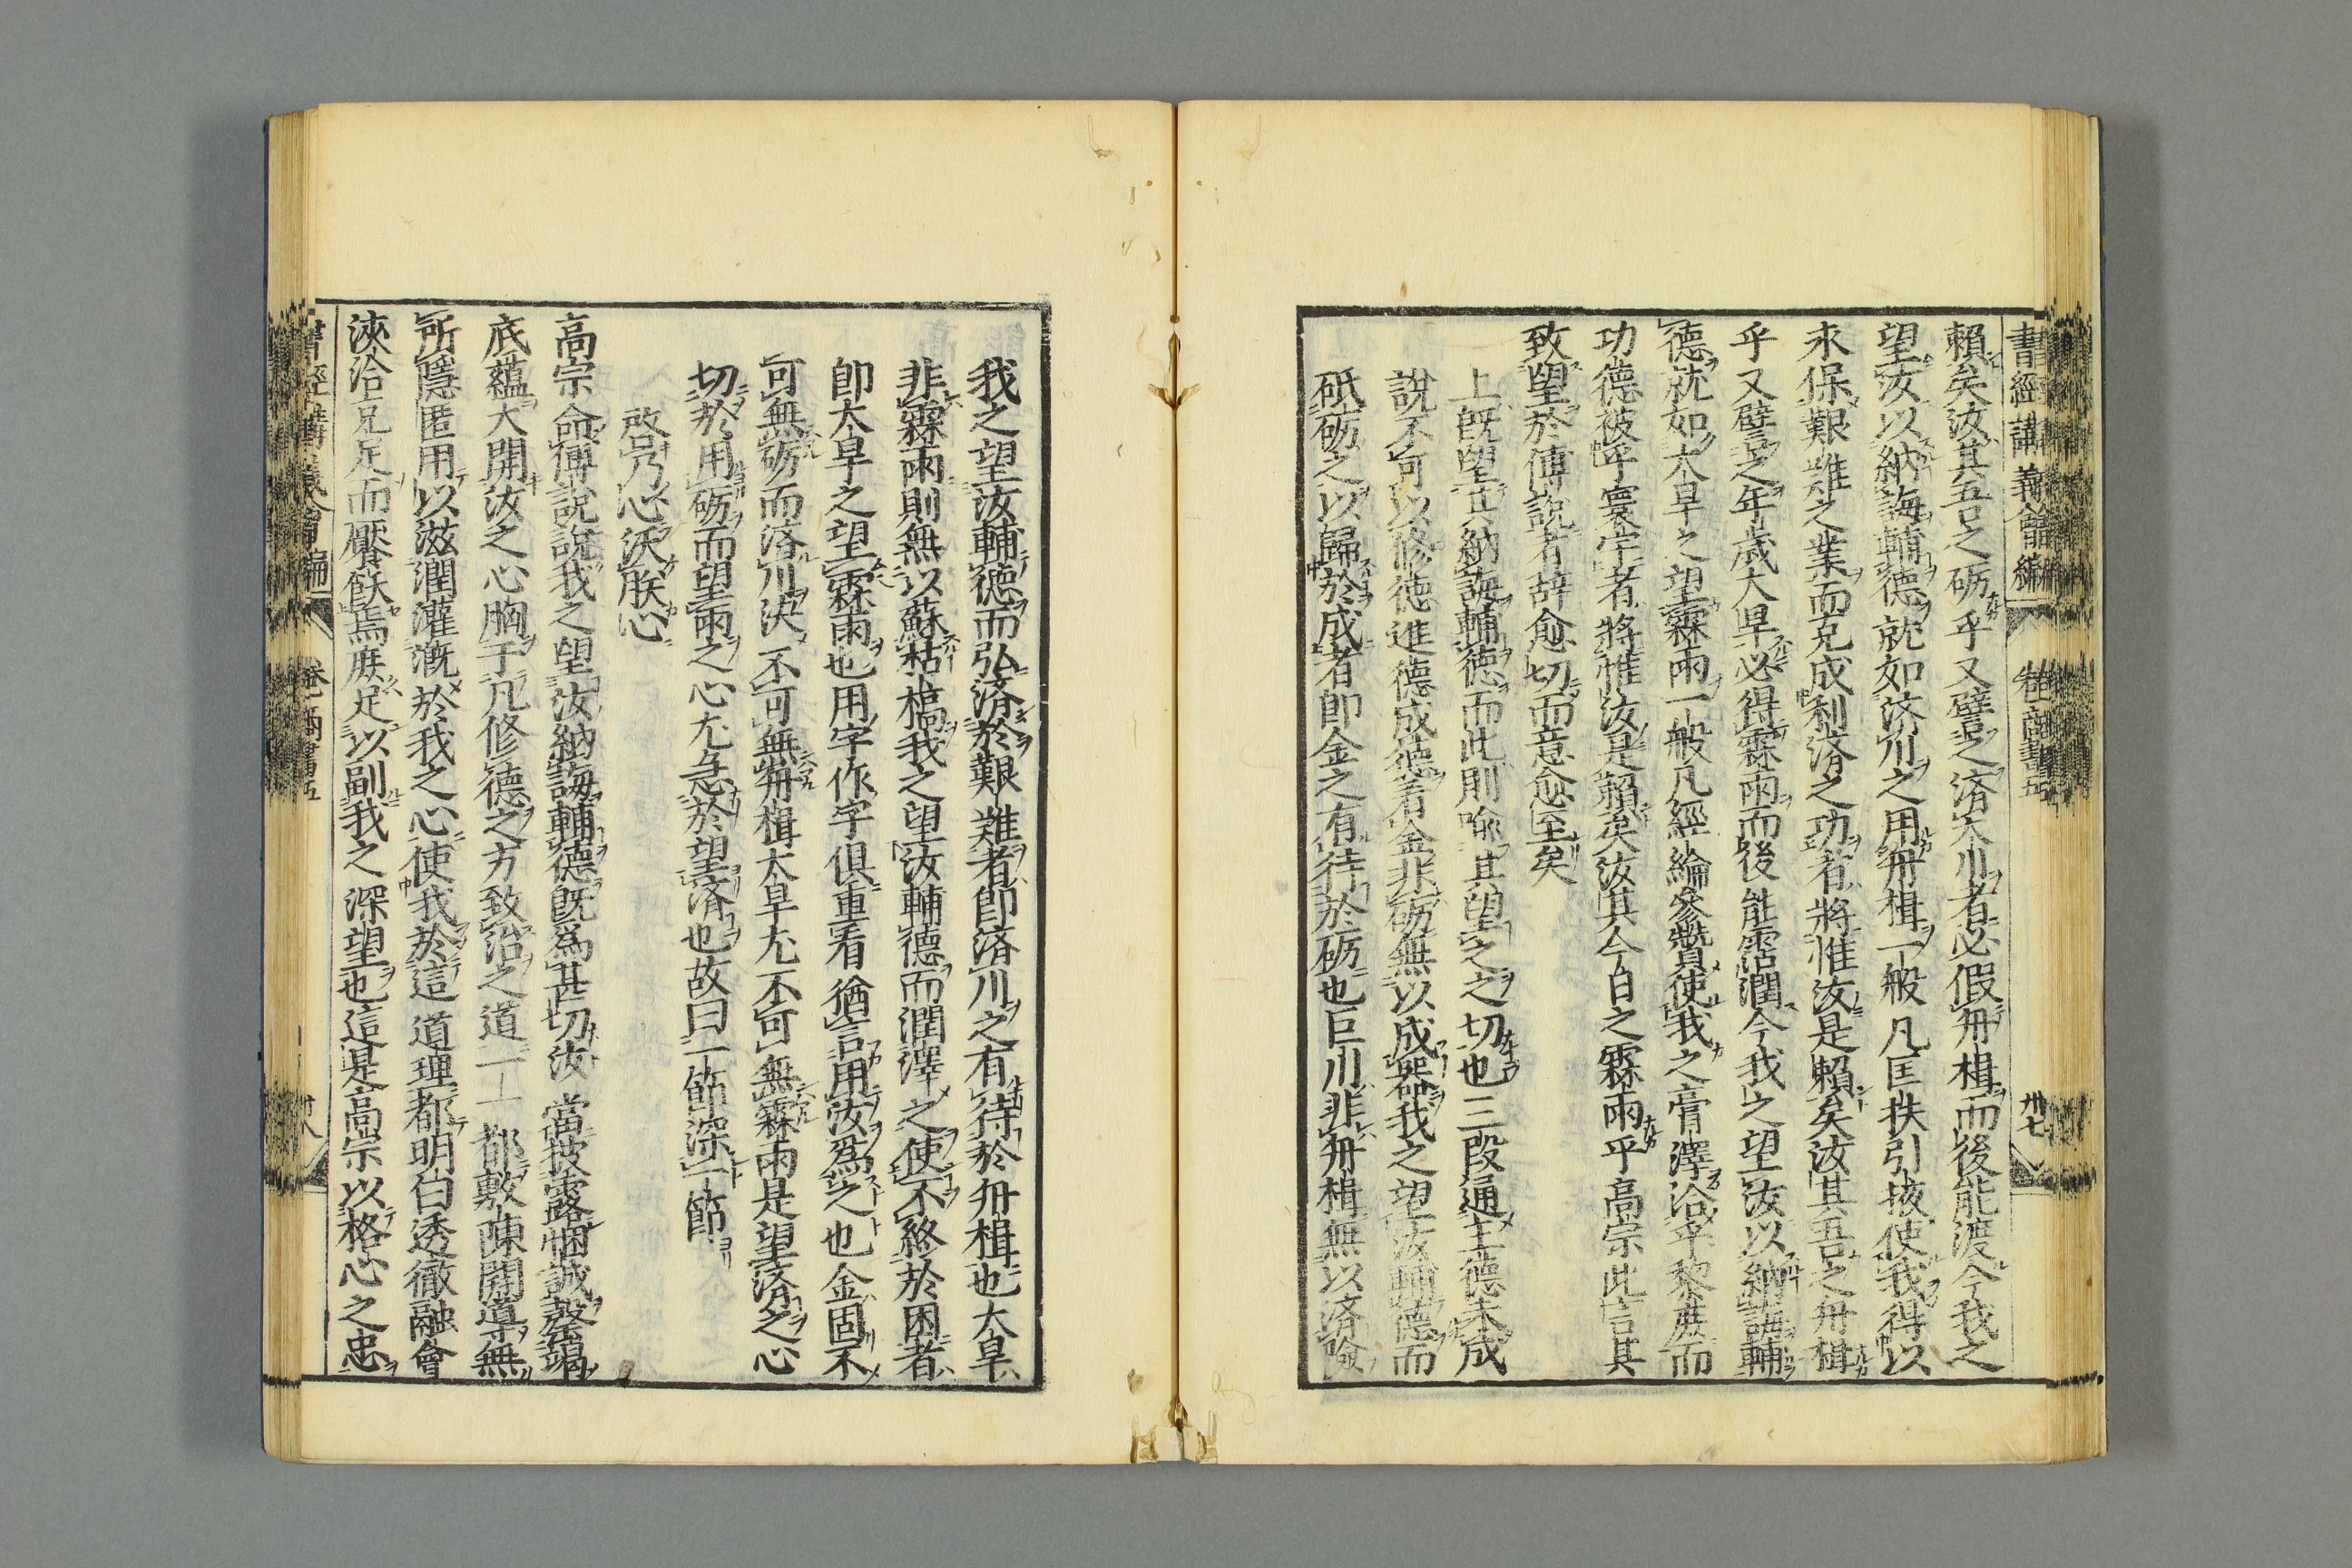 書經講義會編 卷五商書五 卅七
賴矣汝其吾之砺乎又譬之済大川者必假舟楫而後能渡今我之
望汝以納誨輔德就如済川之用舟楫一般凡匡扶引掖使我得以
永保艱難之業而克成利済之功者將惟汝是賴矣汝其吾之舟楫
乎又譬之年歲大旱必得霖雨而後能霑潤今我之望汝以納誨輔
德就如大旱之望霖雨一般凡經綸參贊使我之膏澤洽乎黎庶而
功德被乎寰宇者將惟汝是賴矣汝其今日之霖雨乎高宗此言其
致望於傅說者辞愈切而意愈至矣
上既望其納誨輔德而此則喻其望之之切也三段通主德未成
說不可以修德進德成德看金非砺無以成器我之望汝輔德而
砥砺之以歸於成者即金之有待於砺也巨川非舟楫無以済險
我之望汝輔德而弘済於艱難者即済川之有待於舟楫也大旱
非霖雨則無以蘇枯槁我之望汝輔德而潤澤之使不終於困者
即大旱之望霖雨也用字作字俱重看猶言用汝為之也金固不
可無砺而济川決不可無舟楫大旱尤不可無霖雨是望済之心
切於用砺而望雨之心尤急於望済也故曰一節深一節
啟乃心沃朕心
高宗命傅說說我之望汝納誨輔德既為甚切汝當披露悃誠罄竭
底蘊大開汝之心胸于凡修德之方致治之道一一都敷陳開導無
所隱匿用以滋潤灌溉於我之心使我於這道理都明白透徹融會
浹洽充足而饜飫焉庶足以副我之深望也這是高宗以格心之忠
書經講義會編 卷五商書五